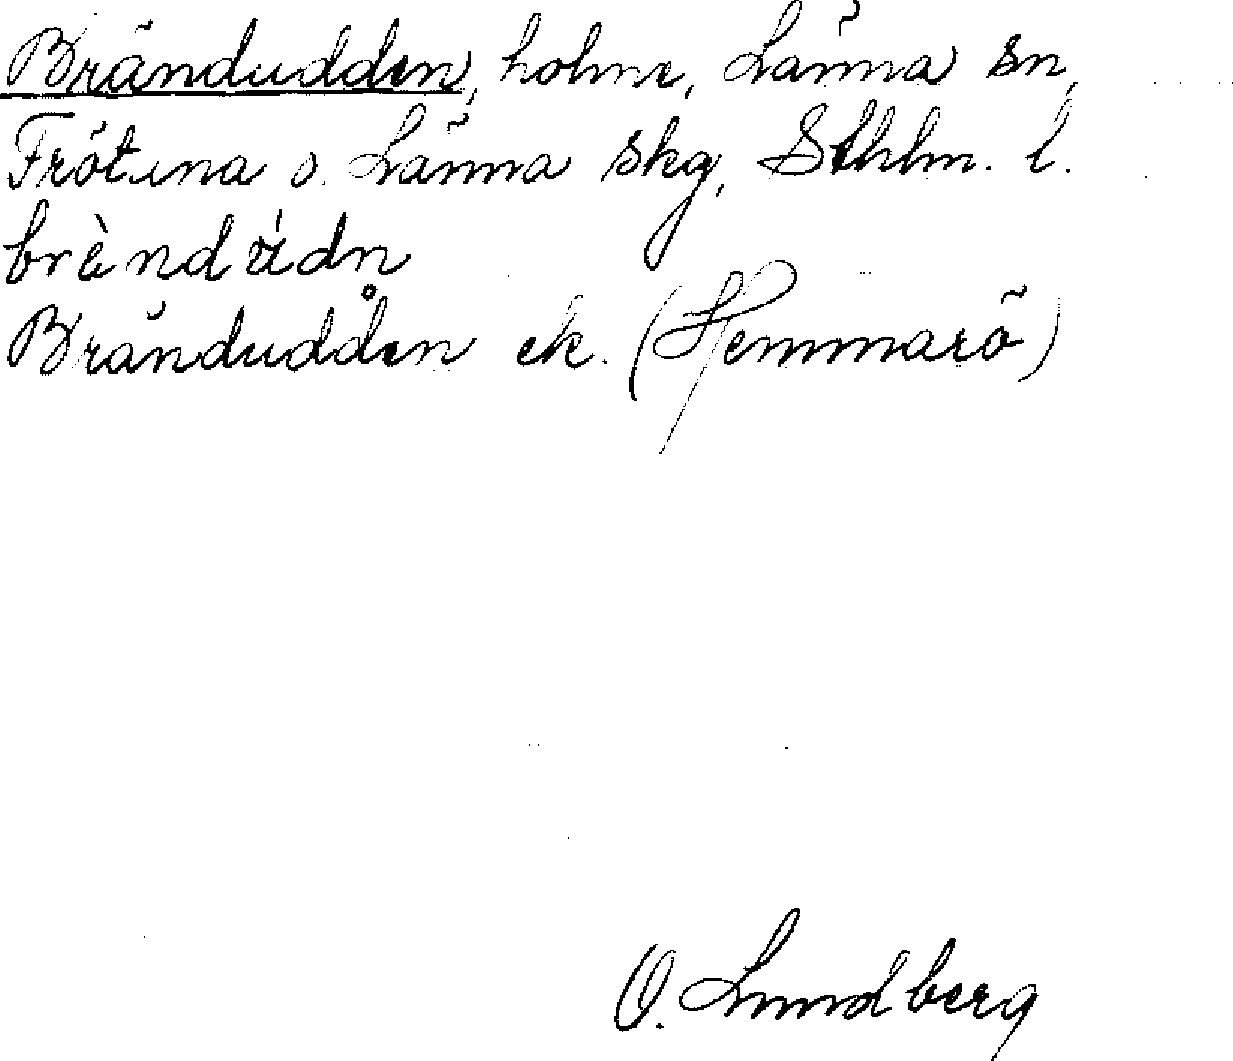 Brändudden, holme, Länna sn,
Frötuna o. Länna skg, Sthlm. l.
brèndúdn
Brändudden ek. (Hemmarö)
O. Lundberg